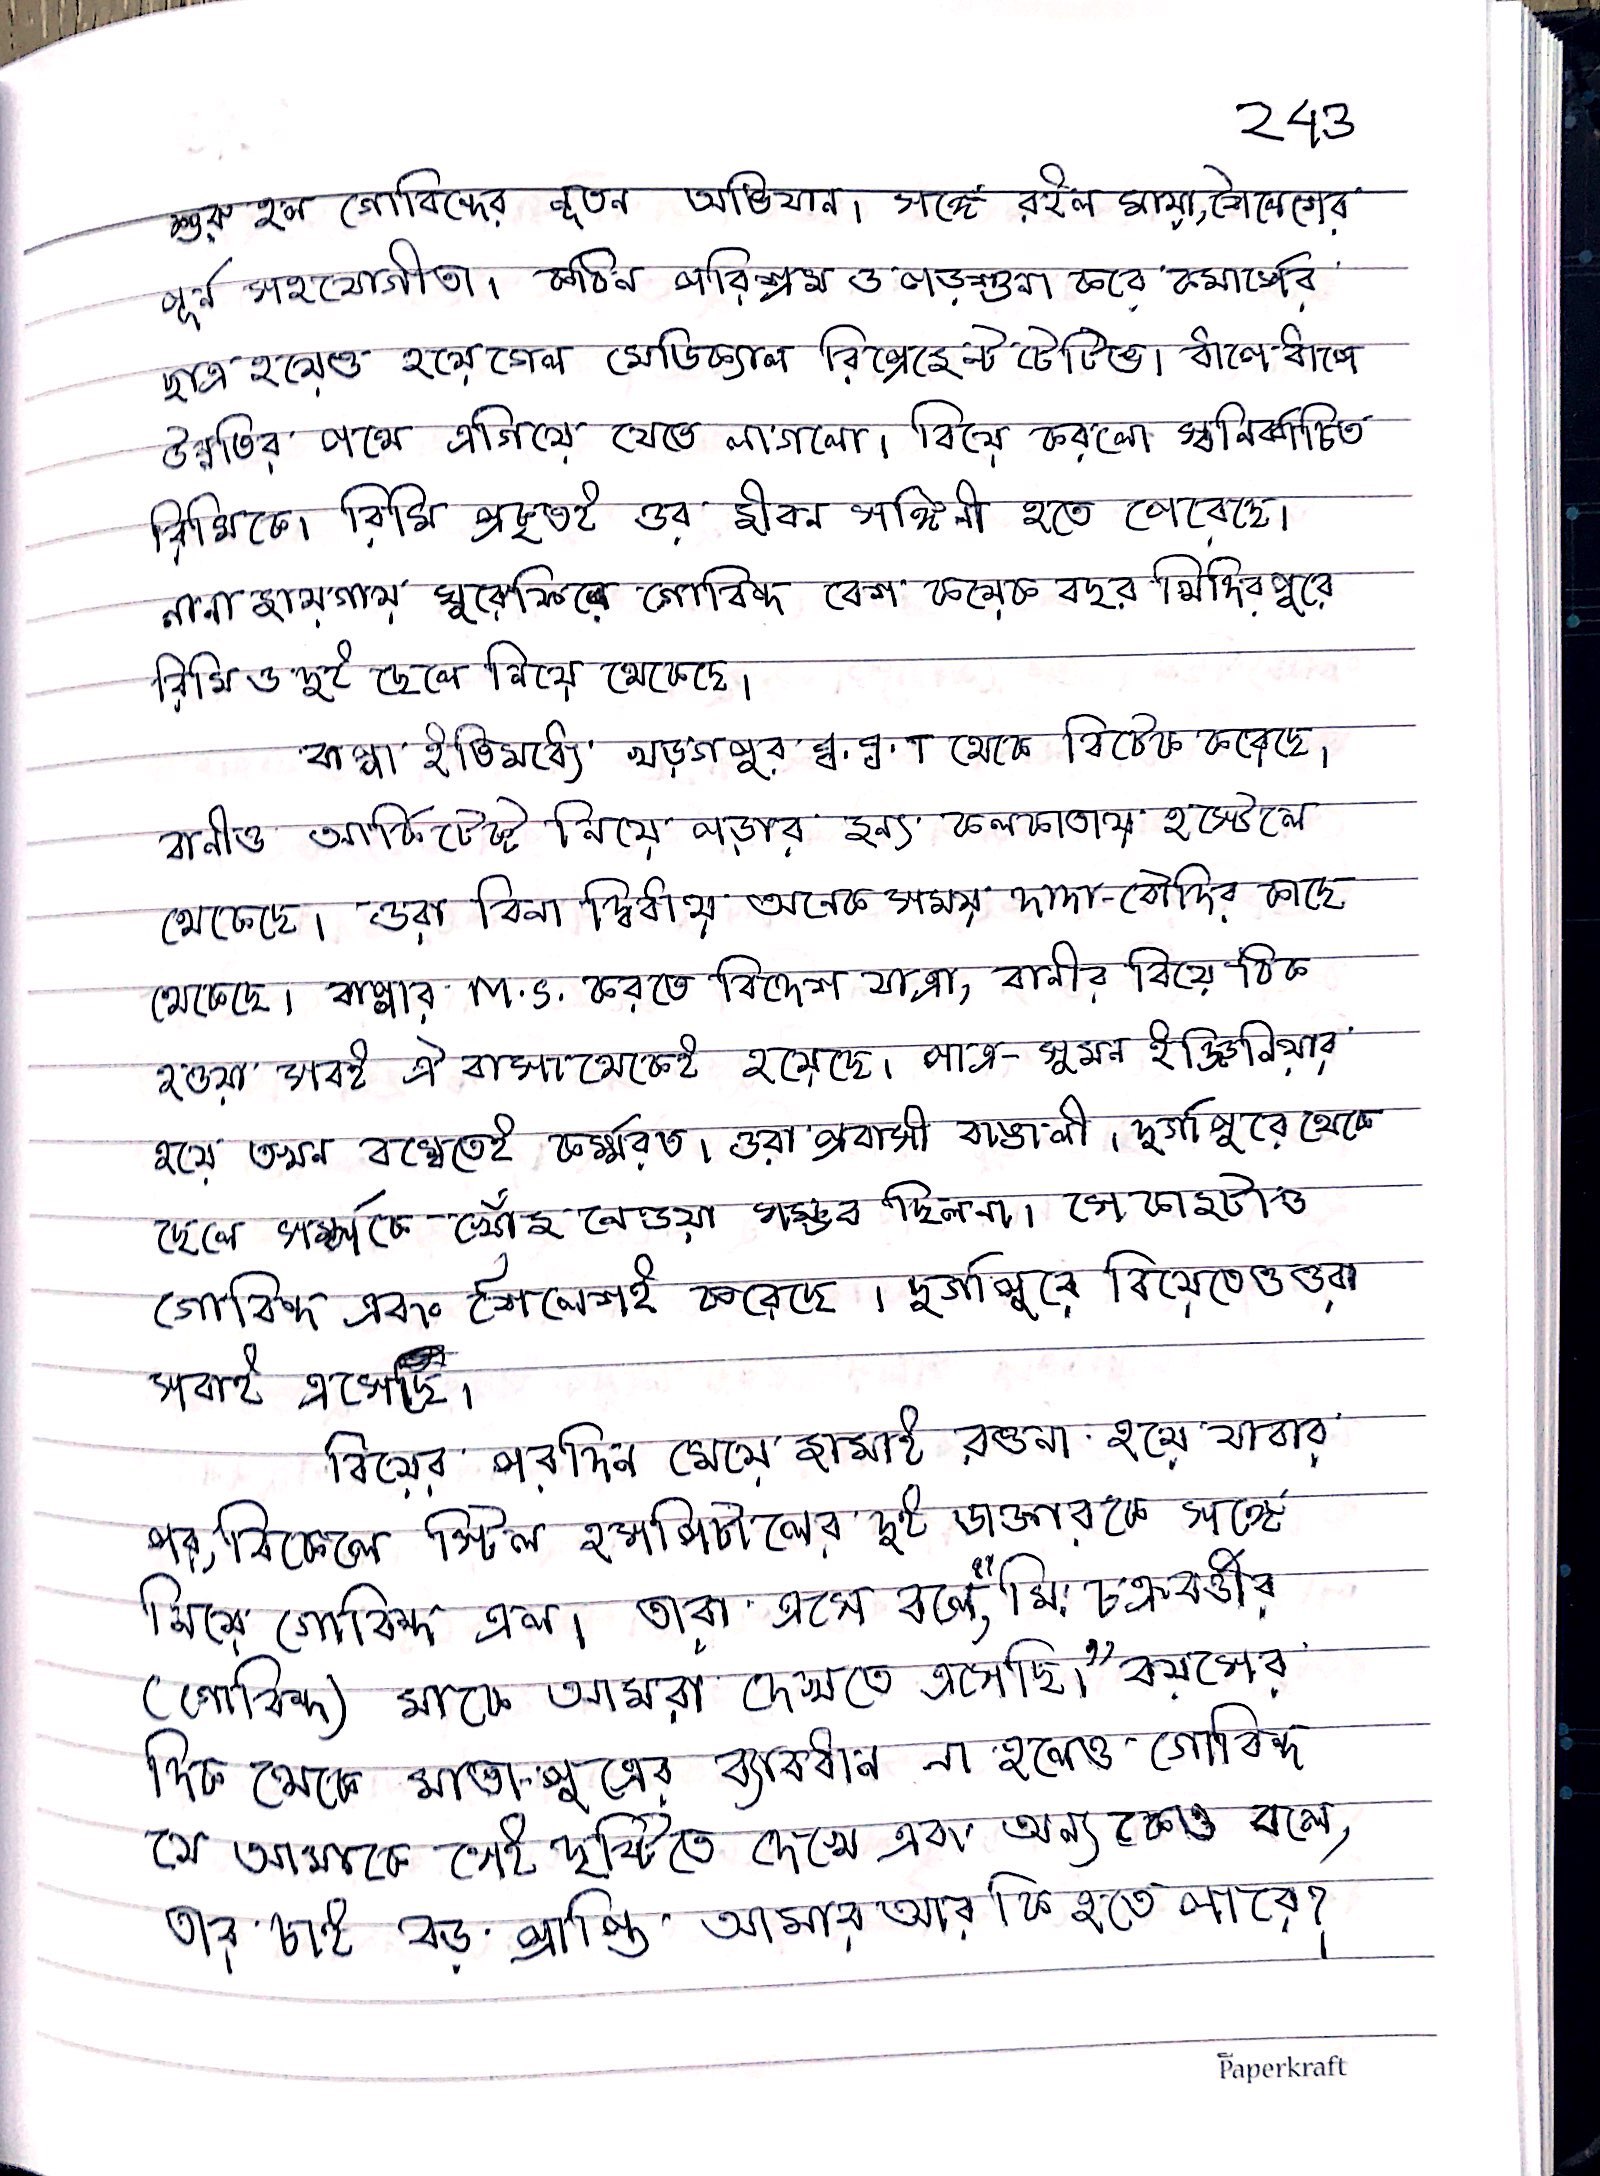 243
শুরু হল গোবিন্দের নূতন অভিযান। সঙ্গে রইল মায়া, শৈলেশের
পূর্ন সহযোগীতা। কঠিন পরিশ্রম ও পড়াশুনা করে কমার্সের
ছাত্র হয়েও হয়ে গেল মেডিক্যাল রিপ্রেজেন্টটেটিভ। ধাপে ধাপে
উন্নতির পথে এগিয়ে যেতে লাগলো। বিয়ে করলো স্বনির্ব্বাচিত
রিমিকে। রিমি প্রকৃতই ওর জীবন সঙ্গিনী হতে পেরেছে।
নানা জায়গায় ঘুরেফিরে গোবিন্দ বেশ কয়েক বছর খিদিরপুরে
রিমি ও দুই ছেলে নিয়ে থেকেছে।
বাপ্পা ইতিমধ্যে খড়গপুর থেকে বিটেক করেছে।
বানীও আর্কিটেক্ট নিয়ে পড়ার জন্য কলকাতায় হস্টেলে
থেকেছে। ওরা বিনা দ্বিধায় অনেক সময় দাদা-বৌদির কাছে
থেকেছে। বাপ্পার M.S. করতে বিদেশ যাত্রা, বানীর বিয়ে ঠিক
হওয়া সবই ঐ বাসা থেকেই হয়েছে। পাত্র - সুমন ইঞ্জিনিয়ার
হয়ে তখন বম্বেতেই কর্ম্মরত। ওরা প্রবাসী বাঙালী। দুর্গাপুরে থেকে
ছেলে সম্পর্কে খোঁজ নেওয়া সম্ভব ছিলনা। সে কাজটাও
গোবিন্দ এবং শৈলেশই করেছে। দুর্গাপুরে বিয়েতেও ওরা
সবাই এসেছি।
বিয়ের পরদিন মেয়ে জামাই রওনা হয়ে যাবার
পর, বিকেলে স্টিল হসপিটালের দুই ডাক্তারকে সঙ্গে
নিয়ে গোবিন্দ এল। তারা এসে বলে, "মিঃ চক্রবর্ত্তীর
(গোবিন্দ) মাকে আমরা দেখতে এসেছি।" বয়সের
দিক থেকে মাতা-পুত্রের ব্যাবধান না হলেও গোবিন্দ
যে আমাকে সেই দৃষ্টিতে দেখে এবং অন্য কেও বলে,
তার চাই বড় প্রাপ্তি আমার আর কি হতে পারে?
Paperkraft